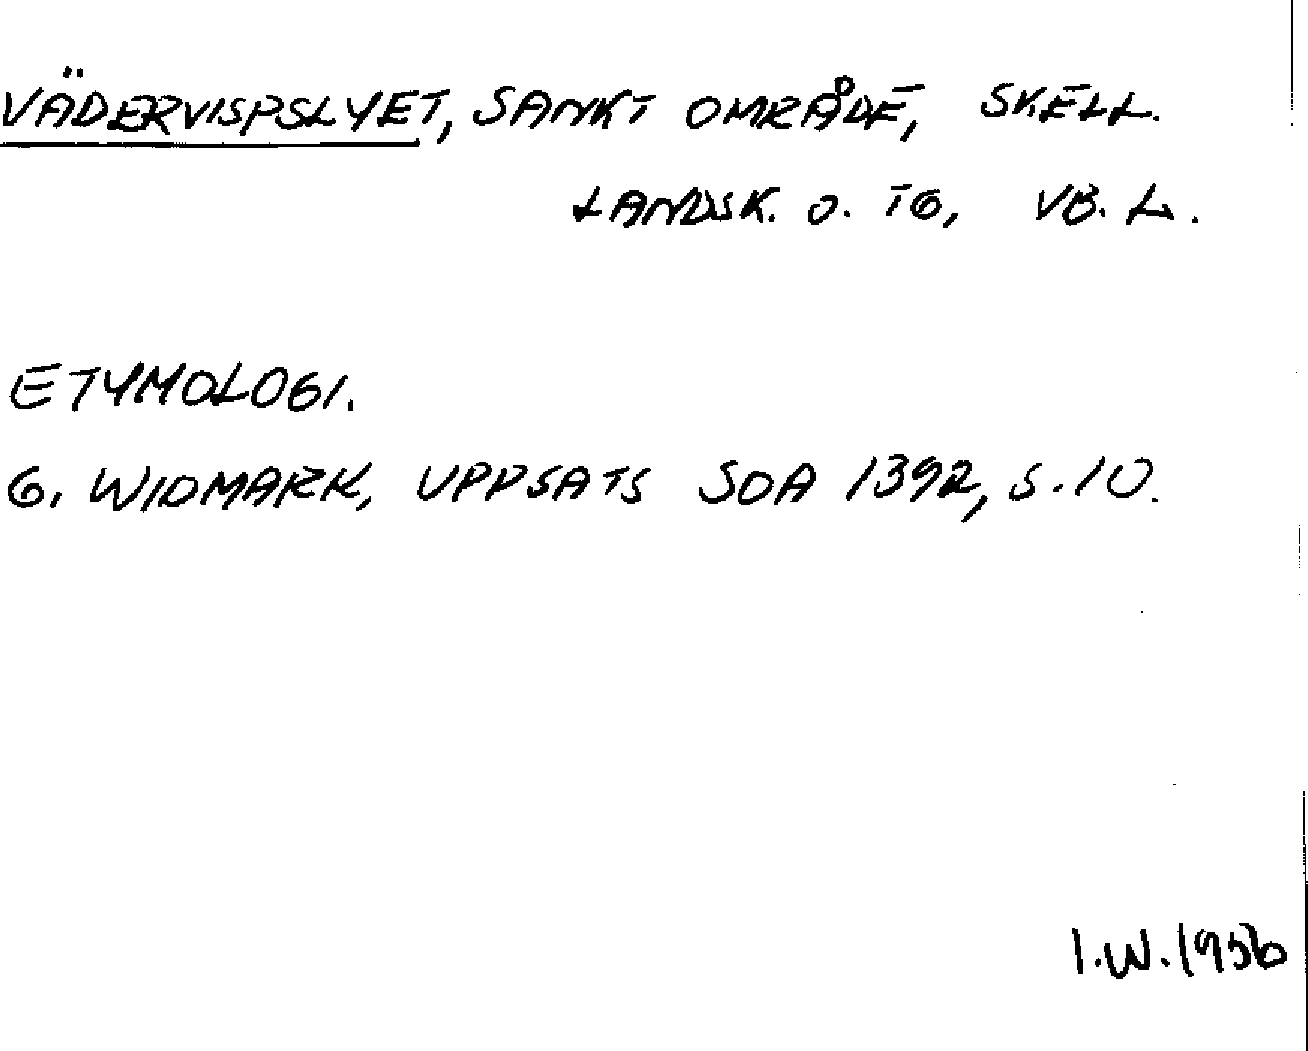 VÄDERVISPSLYET, SANKT OMRÅDE, SKELL.
LANDSK. O. TG, VB. L.
ETYMOLOGI.
G. WIDMARK, UPPSATS SOA 1392, S. 10.
I.W. 1956